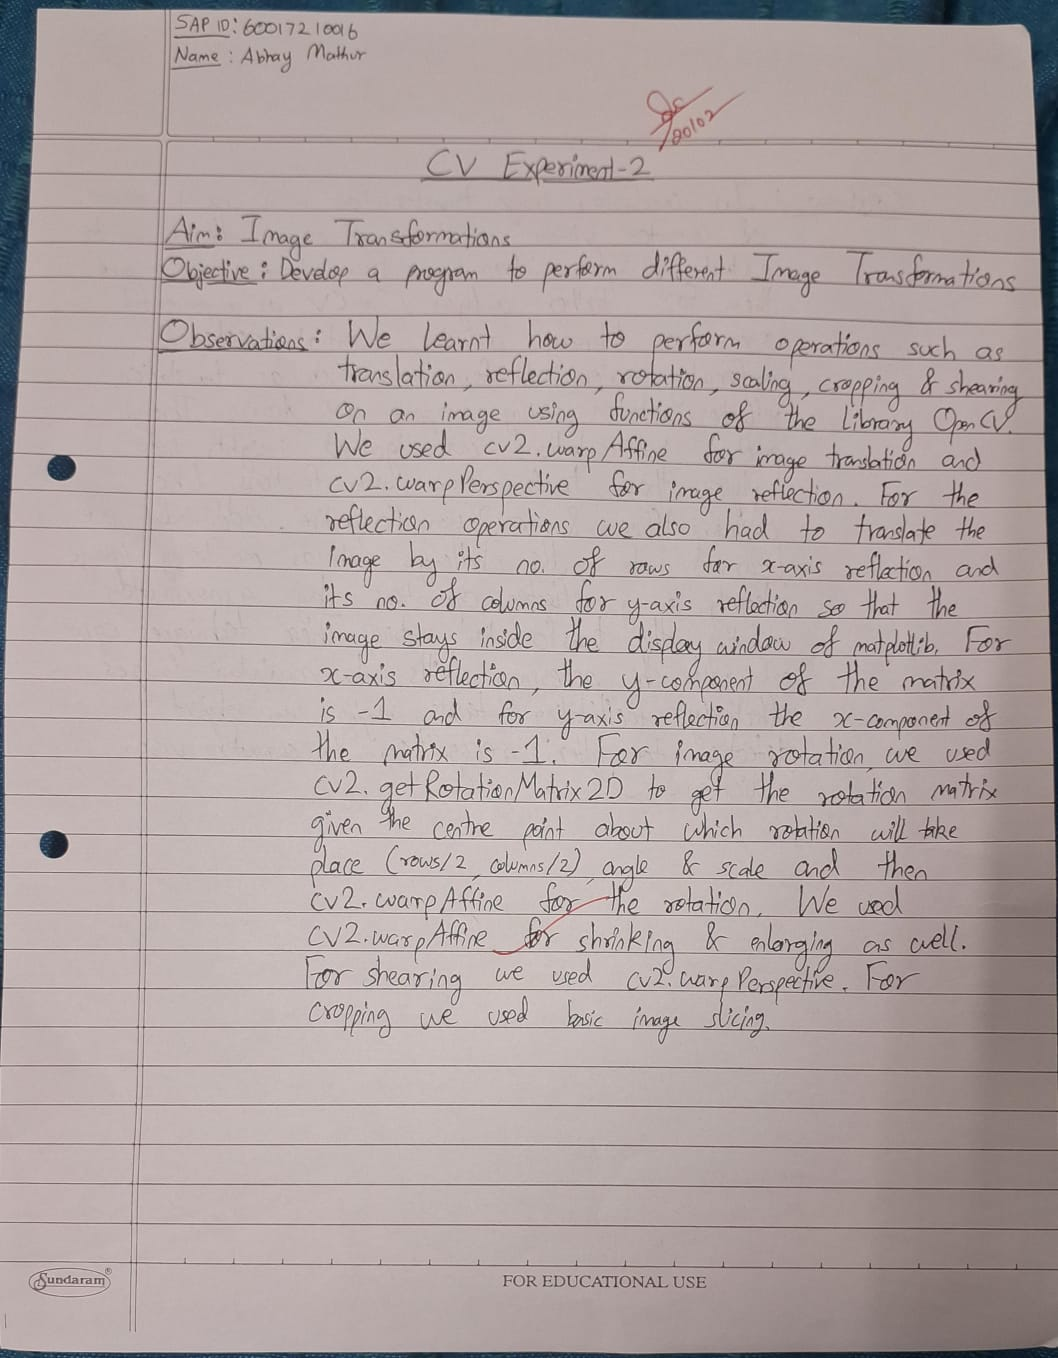 SAP ID: 60017210016
Name: Abhay Mathur
20/02
CV Experiment-2
Aim: Image Transformations
Objective: Develop a program to perform different Image Transformations
Observations: We learnt how to perform operations such as
translation, reflection, rotation, scaling, cropping & shearing
on an image using functions of the library OpenCV.
We used cv2.warpAffine for image translation and
cv2.warpPerspective for image reflection. For the
reflection operations we also had to translate the
image by its no. of rows for x-axis reflection and
its no. of columns for y-axis reflection so that the
image stays inside the display window of matplotlib. For
x-axis reflection, the y-component of the matrix
is -1 and for y-axis reflection the x-component of
the matrix is -1. For image rotation, we used
cv2.getRotationMatrix2D to get the rotation matrix
given the centre point about which rotation will take
place (rows/2, columns/2), angle & scale and then
cv2.warpAffine for the rotation. We used
cv2.warpAffine for shrinking & enlarging as well.
For shearing we used cv2.warpPerspective. For
cropping we used basic image slicing.
Sundaram®
FOR EDUCATIONAL USE